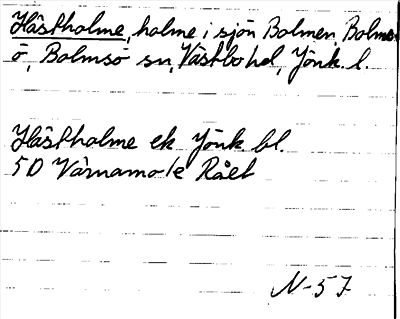 Hästholme, holme i sjön Bolmen, Bolms-
ö, Bolmsö sn, Västbo hd, Jönk. l.
Hästholme ek Jönk. bl.
5D Värnamo 1e Rået
N-57